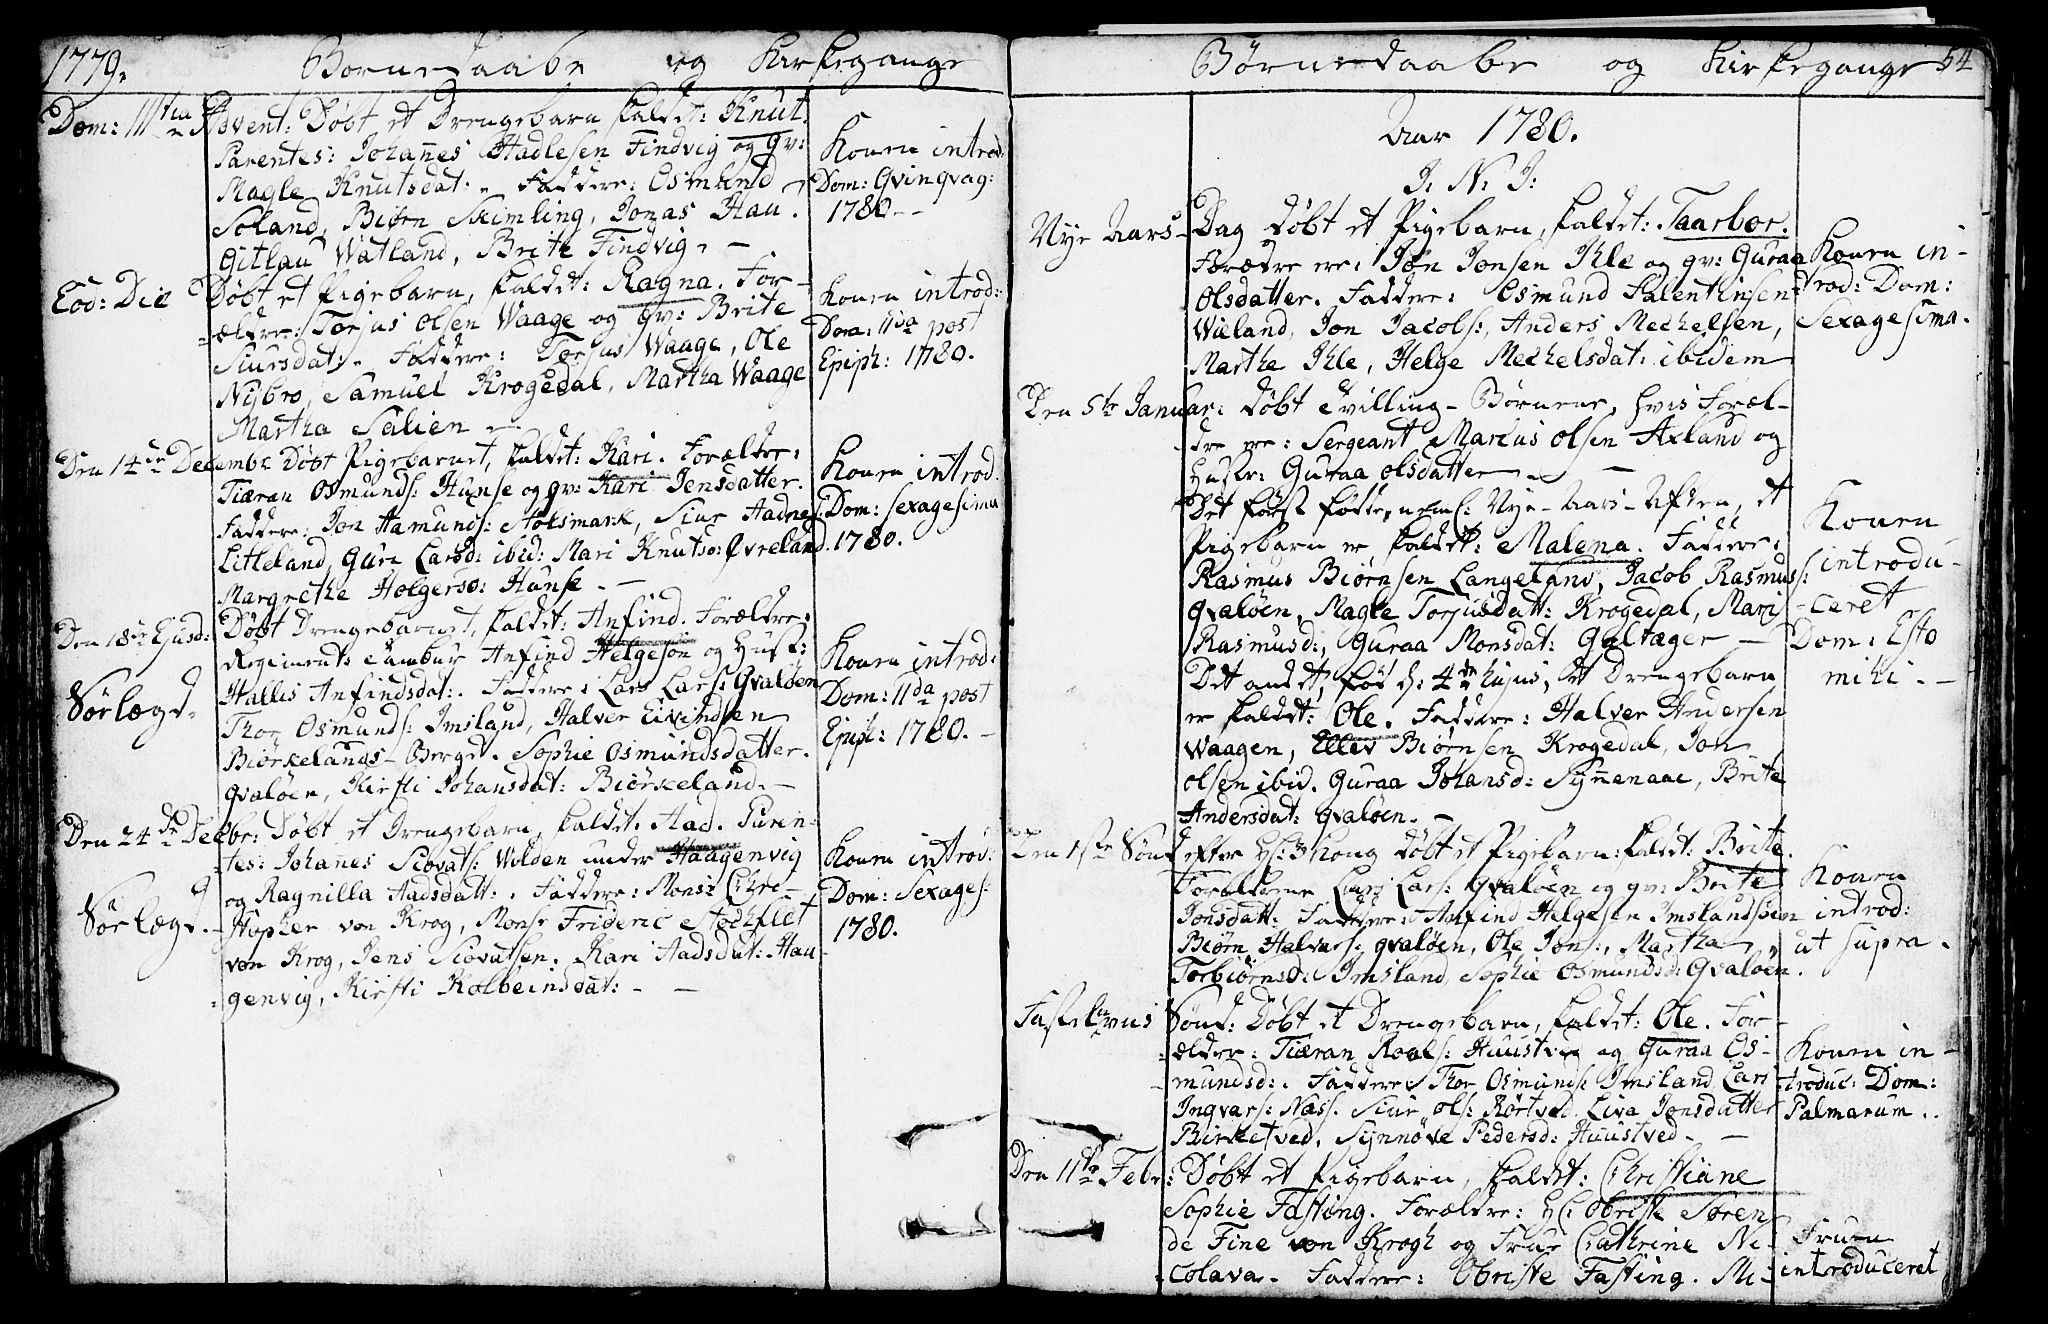 1779.
Børnedaabe og Kirkegange
Dom: III tia Advent: Døbt et Drengebarn kaldet: Knut.
Parentes: Johannes Hadlesen Findvig og gv:
Magle Knutsdat: Faddere: Osmund
Soland, Biørn Skimling, Jonas Hau.
Gitlau Watland, Brite Findvig. -
Konen introd:
Dom: Qvinqvag:
1780 - -
Eod: Die Døbt et Pigebarn, kaldet: Ragna. For-
ældre: Torjus Olsen Waage og gv: Brite
Siursdat:. Faddere: Torjus Waage, Ole
Nybro, Samuel Krogedal, Martha Waage
Martha Salien -
Konen introd:
Dom: IIda post
Epiph: 1780.
Den 14de Decembr Døbt Pigebarnet, kaldet: Kari. Forældre:
Tiæran Osmunds: Hunse og gv: Kari Jensdatter.
Faddere: Jon Aamunds: Stølsmark, Siur Aadnes:
Litteland, Guri Larsd: ibid: Mari Knutsd: Øvreland.
Margrethe Holgersd: Hunse - -
Konen introd.
Dom: Sexagesima
1780.
Den 18de Ejusd: Døbt Drengebarnet, kaldet: Anfind. Forældre:
Regiments Tambur Anfind Helgesøn og Hust:
Hallis Anfindsdat:. Faddere: Lars Lars: Qvaløen
Thor Osmunds: Imsland, Halver Eivindsen
Biörkelands-Berget. Sophie Osmundsdatter.
Qvaløen, Kirsti Johansdat: Biörkeland. -
Sørlægd.
Konen introd:
Dom: IIda post
Epiph: 1780. -
Den 24de Decbr: Døbt et Drengebarn, kaldet. Aad. Paren-
tes: Johanes Siovats: Wilden under Haagenvig
og Ragnilla Aadsdatt:. Faddere: Monsr Chri-
stopher von Krog, Monsr Frideric Stockflet
von Krog, Jens Siovatsen. Kari Aadsdat: Hau-
genvig, Kirsti Kolbeinsdat: - -
Sørlægd.
Konen introd:
Dom: Sexages:
1780.
Børnedaabe og Kirkegange 54
Aar 1780.
J: N: J:
Nye Aars-Dag døbt et Pigebarn, kaldet: Taarbor.
Forældre ere: Jon Jonsen Ihle og gv: Guraa
Olsdatter. Faddere: Osmund Salenthinsen
Wieland, Jon Jacobs:, Anders Mechelsen,
Marthe Ihle, Helge Mechelsdat: ibidem
Konen in-
trod: Dom:
Sexagesima.
Den 5te Januar: døbt Tvilling-Børnene, hvis Foræl-
dre ere: Sergeant Marcus Olsen Axland og
Hustr: Guraa Olsdatter. -
Det først fødte, neml: Nye-Aars-Aften, et
Pigebarn er kaldet: Malena. Faddere:
Rasmus Biørnsen Langeland, Jacob Rasmus:
Qvaløen, Magle Torjusdatt: Krogedal, Mari
Rasmusd:, Guraa Monsdat: Galtager -
Det andet, fød d: 4de hujus, et Drengebarn
er kaldet: Ole. Faddere: Halver Andersen
Waagen, Ellev Biørnsen Krogedal, Jon
Olsen ibid. Guraa Johansd: Synnenaae, Brite
Andersdat: Qvaløen. -
Konen
introdu-
ceret
Dom: Esto
mihi. -
Den 1ste Sønd efter H: 3 Kong døbt et Pigebarn: kaldet: Brite.
Forældrene Lars Lars: Qvaløen og gv: Brite
Jonsdatt: Faddere: Anfind Helgesen Imslandsøen
Biørn Halvars: Qvaløen, Ole Jons:, Martha
Torbiørnsd: Imsland, Sophie Osmundsd: Qvaløen.
Konen
introd:
ut supra.
Fastelavns Sønd: Døbt et Drengebarn, kaldet: Ole. For-
ældre: Tiæran Roals: Huustved og Guraa Os-
mundsd:. Faddere: Thor Osmunds: Imsland, Lars
Ingvars: Næss. Siur Ols: Rørtved. Liva Jonsdatter
Birketved, Synnøve Pedersd: Huustved. -
Konen in-
troduc: Dom:
Palmarum..
Den 11te Febr: Døbt et Pigebarn, kaldet: Christiane
Sophie Fasting. Forældre: H: Obriste Søren
de Fine von Krogh og Frue Cathrine Ni-
colava. Faddere: Obriste Fasting. Mi-
Fruen
introduceret